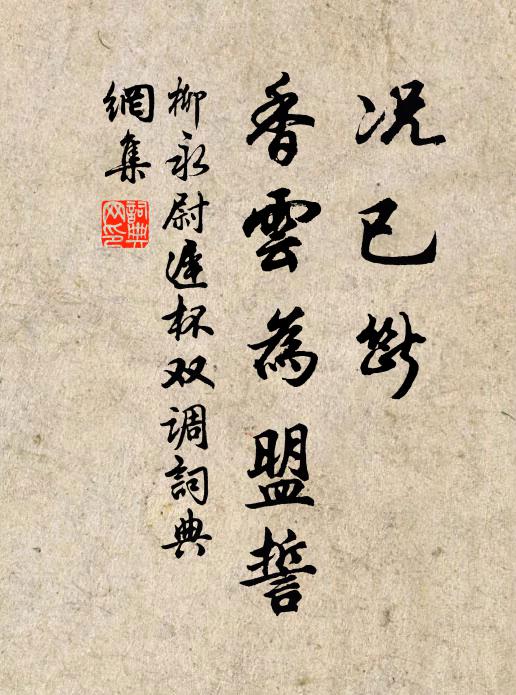 况已斷
香雲為盟誓
柳永尉遲杯双调詞典
網集
詞典
网印